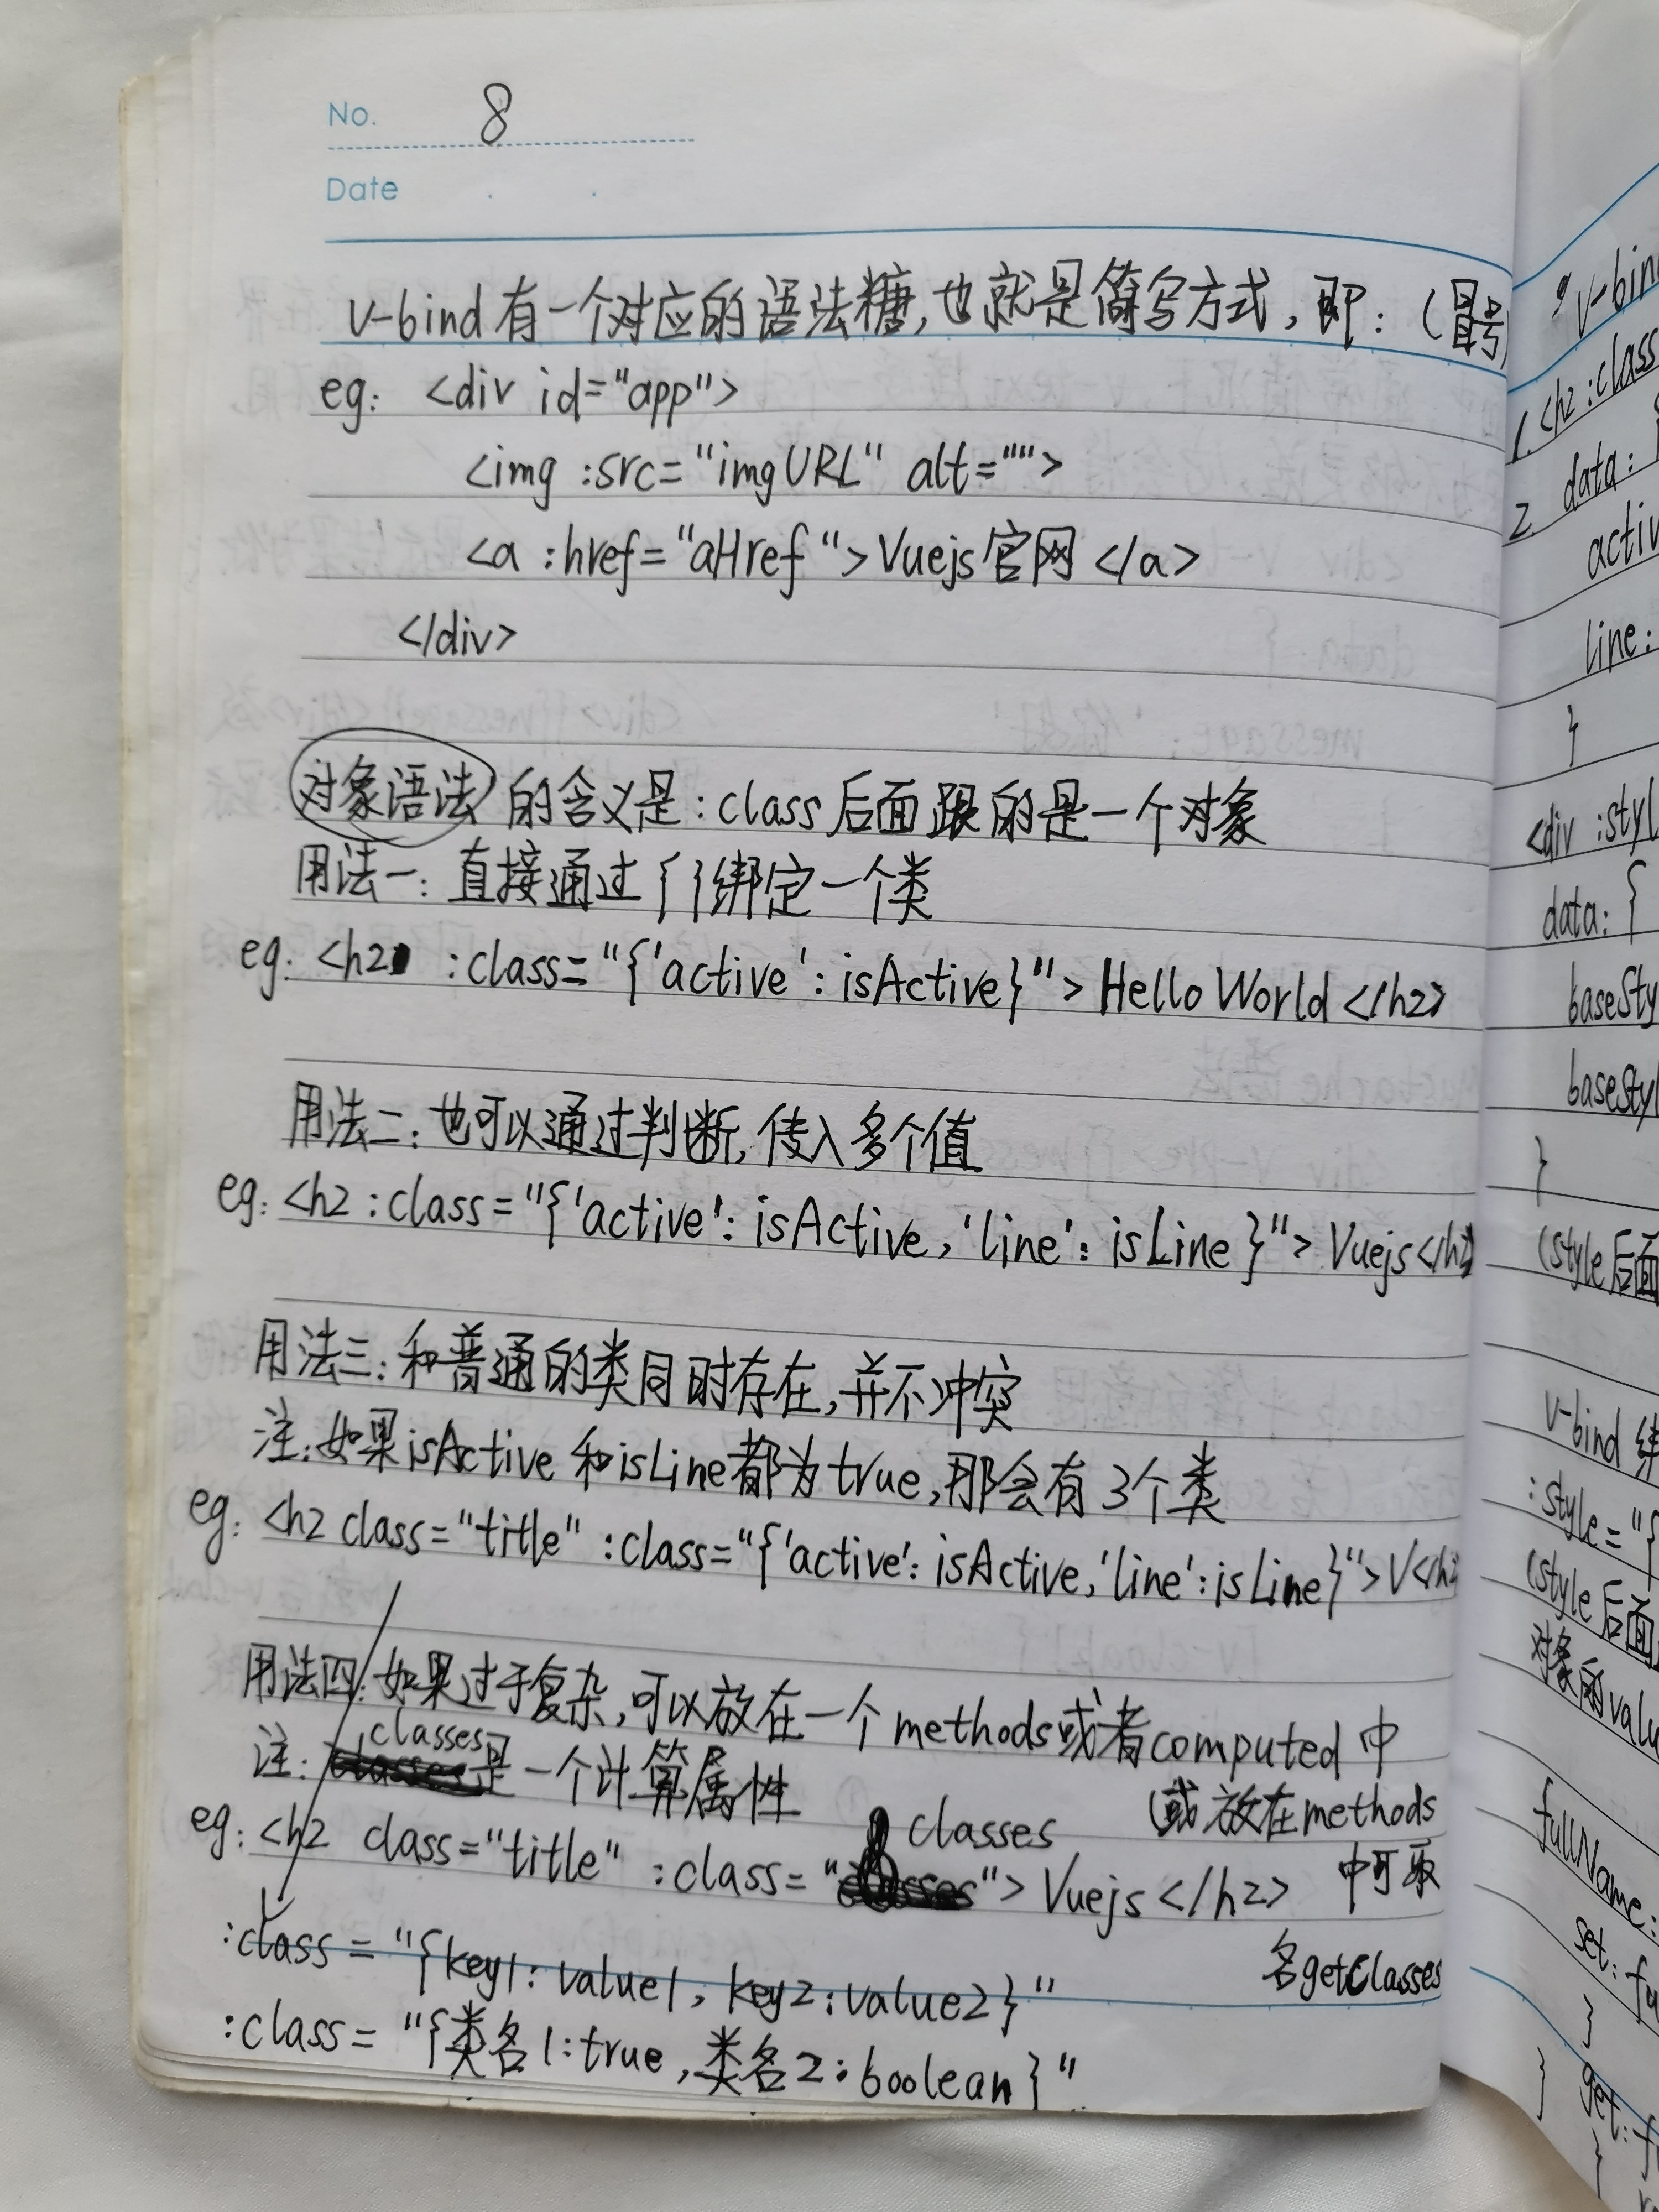 No. 8
Date
v-bind有一个对应的语法糖,也就是简写方式,即:(冒号)
eg: <div id="app">
<img :src="imgURL" alt="">
<a :href="aHref">Vuejs官网</a>
</div>
对象语法的含义是:class后面跟的是一个对象
用法一:直接通过{}绑定一个类
eg: <h2 :class="{'active':isActive}">Hello World</h2>
用法二:也可以通过判断,传入多个值
eg: <h2 :class="{'active':isActive,'line':isLine}">Vuejs</h2>
用法三:和普通的类同时存在,并不冲突
注:如果isActive和isLine都为true,那会有3个类
eg: <h2 class="title" :class="{'active':isActive,'line':isLine}">V</h2
用法四:如果过于复杂,可以放在一个methods或者computed中
注:classes是一个计算属性
(或放在methods
中可取
名getClasses
eg: <h2 class="title" :class="classes">Vuejs</h2>
:class="{key1:value1,key2:value2}"
:class="{类名1:true,类名2:boolean}"
9 v-bin
1. <h2 :class
2. data:
activ
line:
}
<div :styl
data: {
baseSty
baseStyl
}
(style后面
v-bind 绑
:style="{
(style后面
对象的valu
fullName:
set: fu
}
get: f
}
}